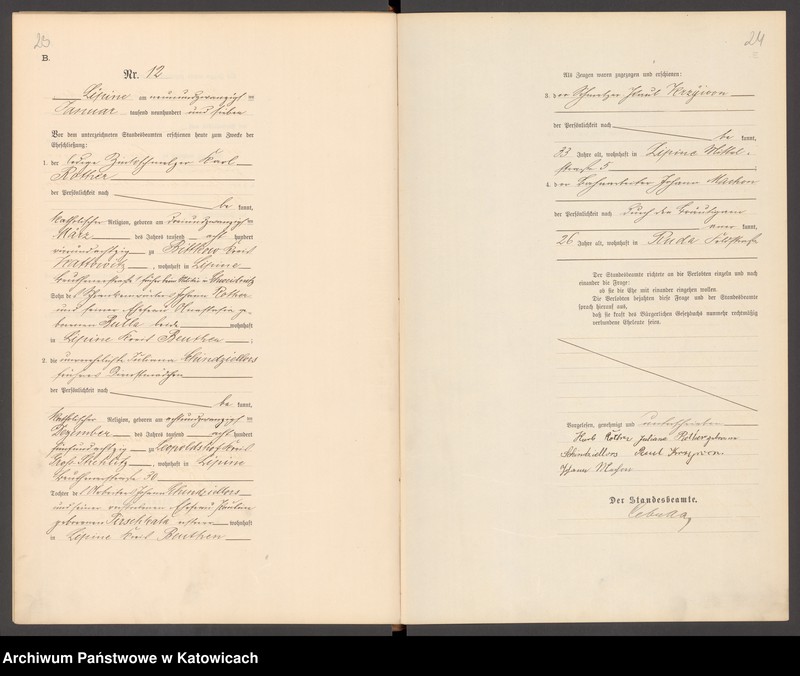 23
B.
Nr. 12
Lipine am neunundzwanzigsten
Januar tausend neunhundert und sieben
Vor dem unterzeichneten Standesbeamten erschienen heute zum Zwecke der
Eheschließung:
1. der ledige Zinkschmelzer Karl
Rother
der Persönlichkeit nach
be kannt,
katholischer Religion, geboren am dreiundzwanzigsten
März des Jahres tausend acht hundert
vierundachtzig zu Bittkow Kreis
Kattowitz, wohnhaft in Lipine
Beuthenerstraße
Sohn des Johann Rother
und seiner Ehefrau Anastasia ge-
borenen Bulla beide wohnhaft
in Lipine Kreis Beuthen;
2. die unverehelichte Juliana Schindziellorz
Dienstmädchen
der Persönlichkeit nach
be kannt,
katholischer Religion, geboren am achtundzwanzigsten
Dezember des Jahres tausend acht hundert
fünfundachtzig zu Leopoldshof Kreis
Groß Strehlitz, wohnhaft in Lipine
Beuthenerstraße 30
Tochter des Arbeiters Johann Schindziellorz
und seiner verstorbenen Ehefrau Paulina
geborenen wohnhaft
in Lipine Kreis Beuthen
24
Als Zeugen waren zugezogen und erschienen:
3. der Schmelzer Paul
der Persönlichkeit nach
be kannt,
33 Jahre alt, wohnhaft in Lipine Mittel-
straße 5;
4. der Bahnarbeiter Johann Machon
der Persönlichkeit nach durch den Bräutigam
aner kannt,
26 Jahre alt, wohnhaft in Ruda Feldstraße
Der Standesbeamte richtete an die Verlobten einzeln und nach
einander die Frage:
ob sie die Ehe mit einander eingehen wollen.
Die Verlobten bejahten diese Frage und der Standesbeamte
sprach hierauf aus,
daß sie kraft des Bürgerlichen Gesetzbuchs nunmehr rechtmäßig
verbundene Eheleute seien.
Vorgelesen, genehmigt und unterschrieben
Karl Rother Juliana Rother geborene
Schindziellorz Paul
Johann Machon
Der Standesbeamte.
Cebulla
Archiwum Państwowe w Katowicach